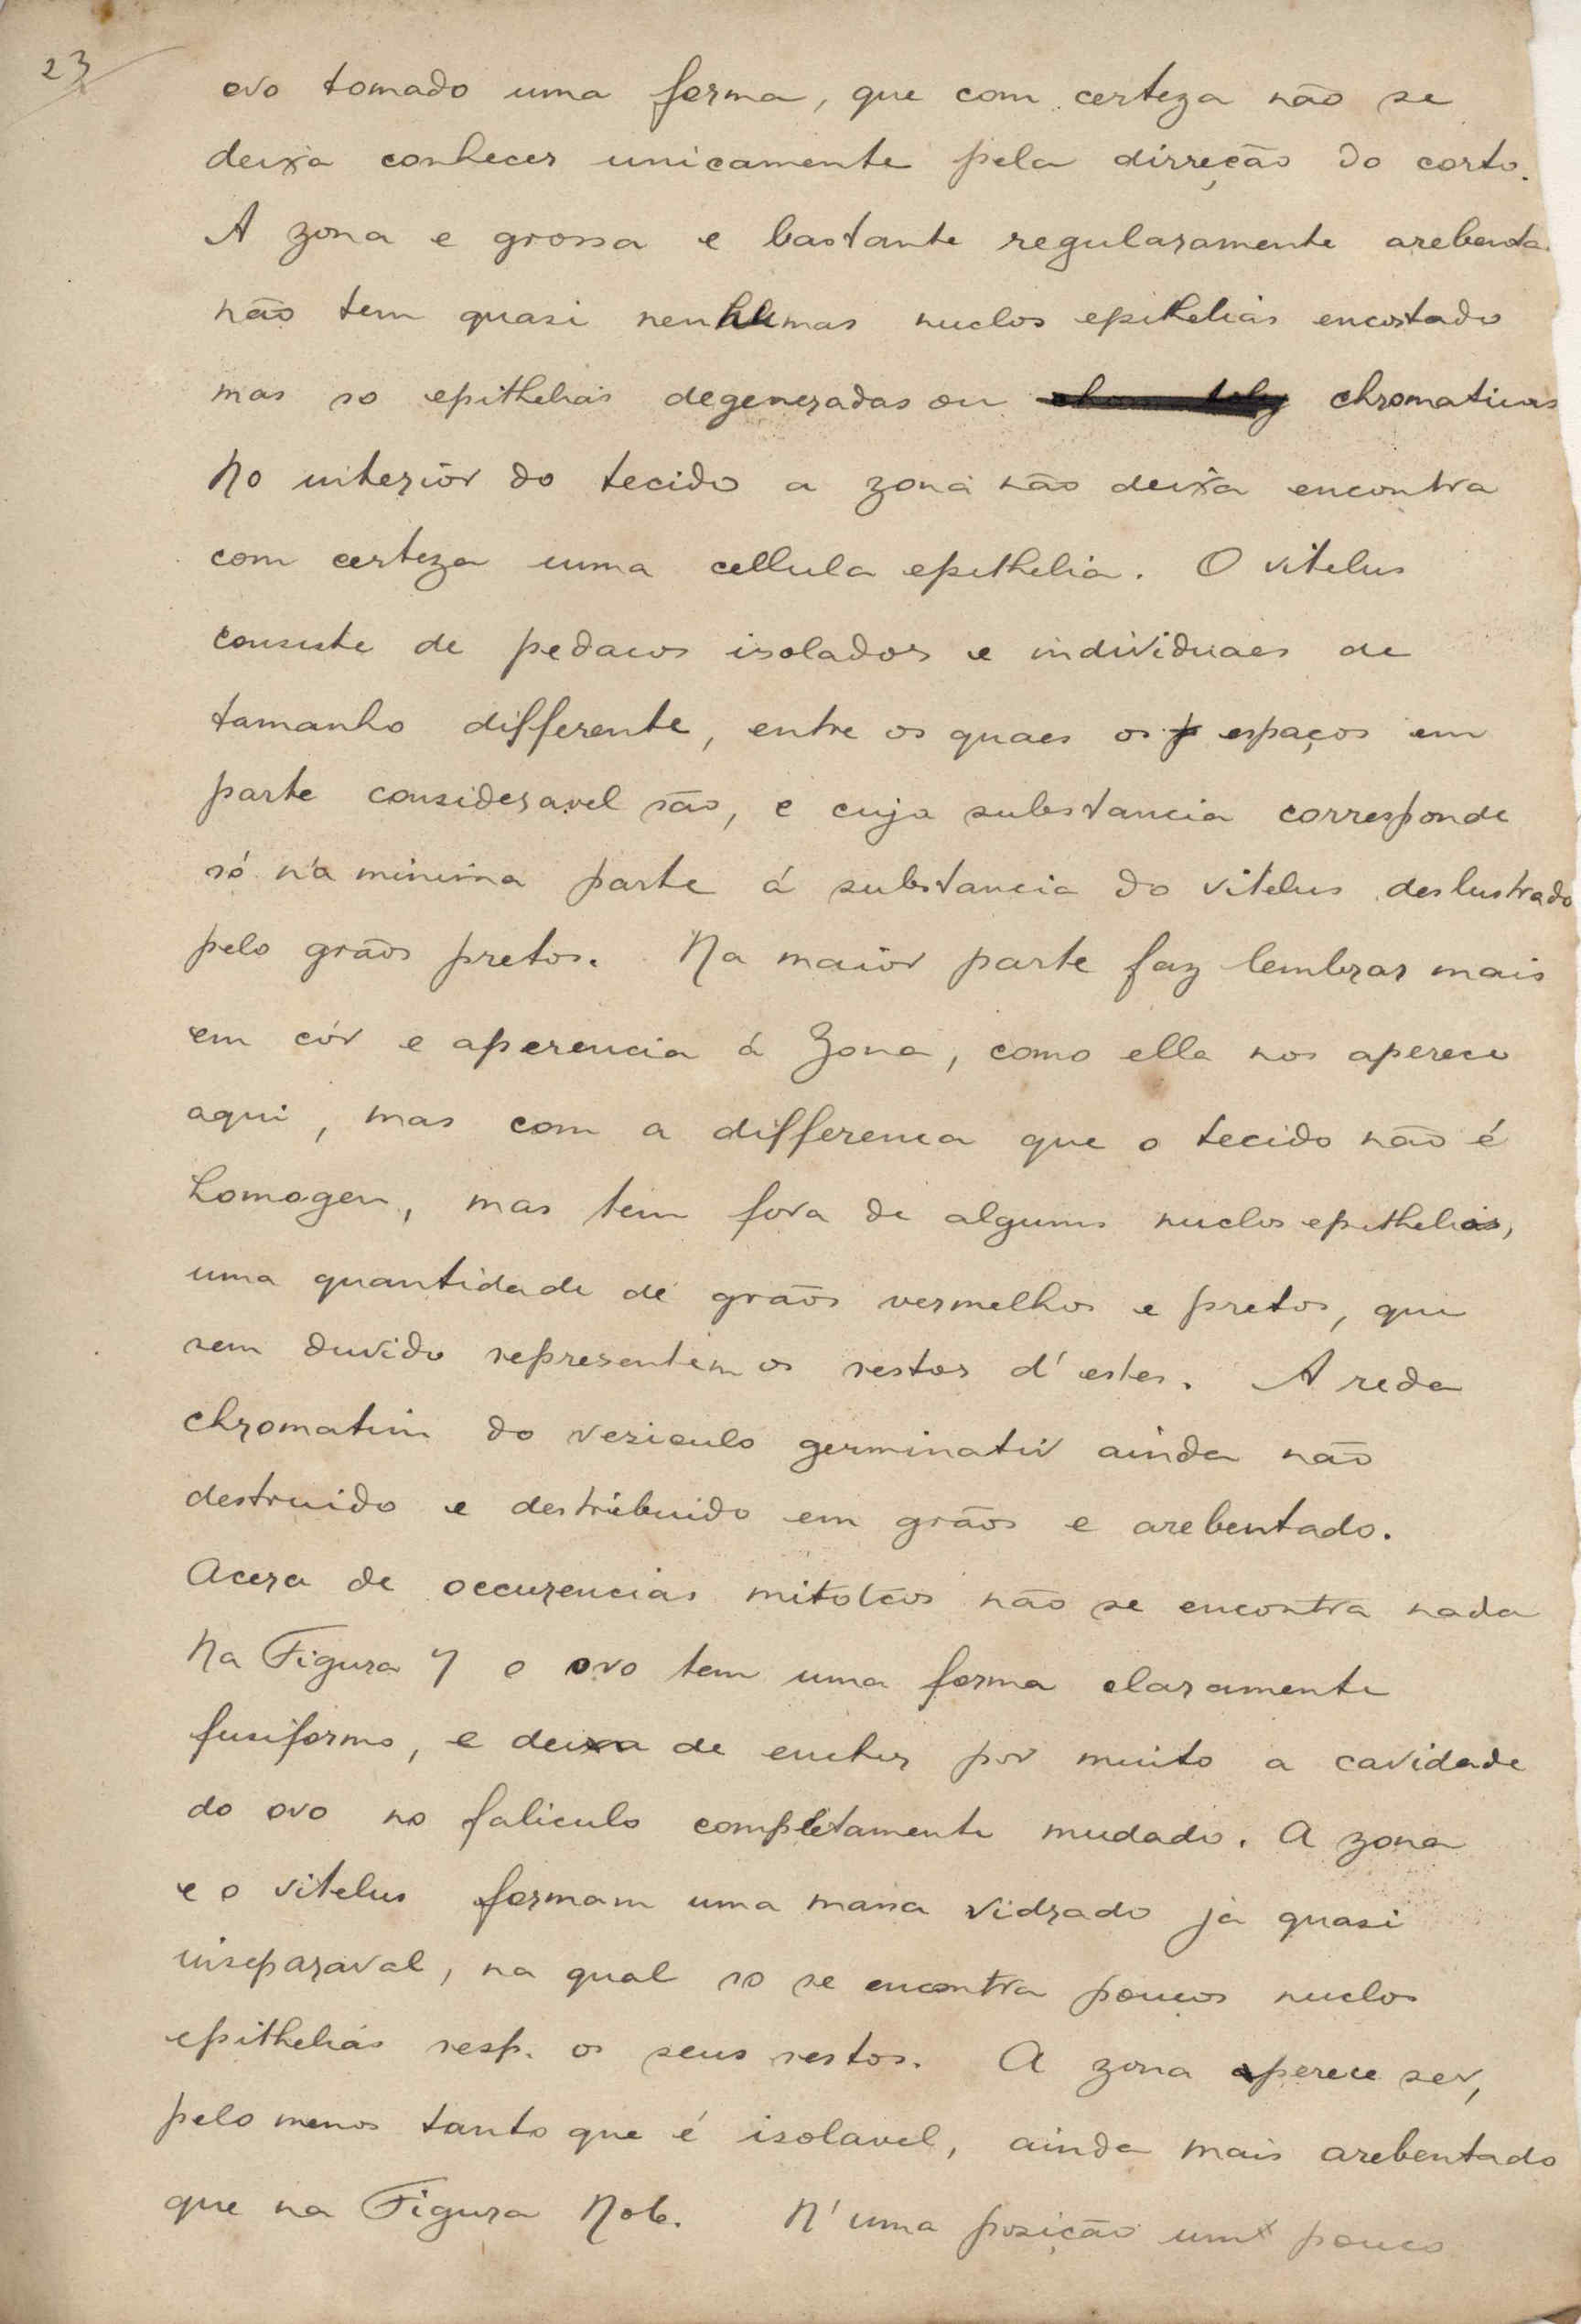 23
ovo tomado uma forma, que com certeza não se
deixa conhecer unicamente pela dirreção do corto.
A zona e grossa e bastante regularamente arebenta.
não tem quasi nenhumas nuclos epithelias encostado
mas so epithelias degeneradas ou chromaticas
No interior do tecido a zona não deixa encontra
com certeza uma cellula epithelia. O vitelus
consiste de pedacos isolados e individuaes de
tamanho differente, entre os quaes os espaços em
parte consideravel são, e cuja substancia corresponde
só n'a minima parte á substancia do vitelus deslustrado
pelo grãos pretos. Na maior parte faz lembrar mais
em côr e aperencia á Zona, como ella nos aperece
aqui, mas com a differenca que o tecido não é
homogen, mas tem fora de algums nuclos epithelias,
uma quantidade de grãos vermelhos e pretos, que
sem duvido representem os restos d'estes. A reda
chromatin do vesiculo germinativ ainda não
destruido e destribuido em grãos e arebentado.
Acera de occurencias mitoticos não se encontra nada
Na Figura 7 o ovo tem uma forma claramente
fusiformo, e deixa de encher por muito a cavidade
do ovo no faliculo completamente mudado. A zona
e o vitelus formam uma massa vidrado já quasi
inseparaval, na qual so se encontra poucos nuclos
epithelias resp. os seus restos. A zona aperece ser,
pelo menos tanto que é isolavel, ainda mais arebentado
que na Figura No6. N'uma posição um pouco